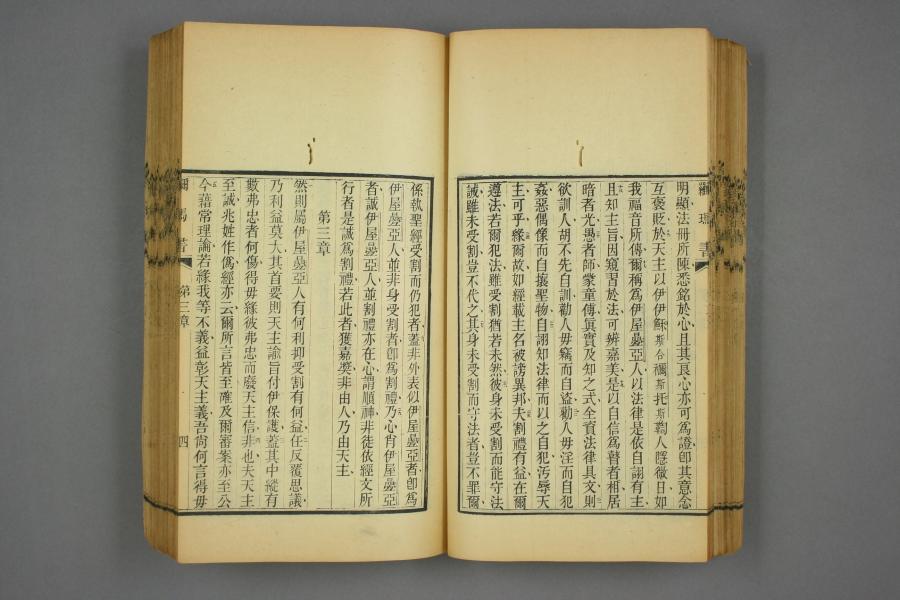 明顯法冊所陳悉銘於心且其良心亦可為證卽其意念
互褒貶於天主以伊伊穌斯合禰斯托斯鞫人隱微日如
我福音所傳爾稱為伊屋疊亞人以法律是依自詡有主
且知主旨因窺習於法可辨嘉美是以自信為瞽者相居
暗者光愚者師蒙童傅眞實及知之式全資法律具文則
欲訓人胡不先自訓勸人毋竊而自盜勸人毋淫而自犯
姦惡偶像而自攘聖物自詡知法律而以之自犯污辱天
主可乎緣爾故如經載主名被謗異邦夫割禮有益在爾
遵法若爾犯法雖受割猶若未然彼身未受割而能守法
誡雖未受割豈不代之其身未受割而守法者豈不罪爾
係執聖經受割而仍犯者蓋非外表似伊屋疊亞者卽為
伊屋疊亞人並非身受割者卽為割禮乃心肖伊屋疊亞
者誠伊屋疊亞人並割禮亦在心謂順神非徒依經文所
行者是誠為割禮若此者獲嘉獎非由人乃由天主
第三章
然則屬伊屋疊亞人有何利抑受割有何益任反覆思議
乃利益莫大其首要則天主諭旨付伊保護蓋其中縱有
數弗忠者何傷得毋緣彼弗忠而廢天主信非也夫天主
至誠兆姓作僞經亦云爾所言皆至確及爾審案亦至公
今藉常理論若緣我等不義益彰天主義吾尙何言得毋
第三章
四